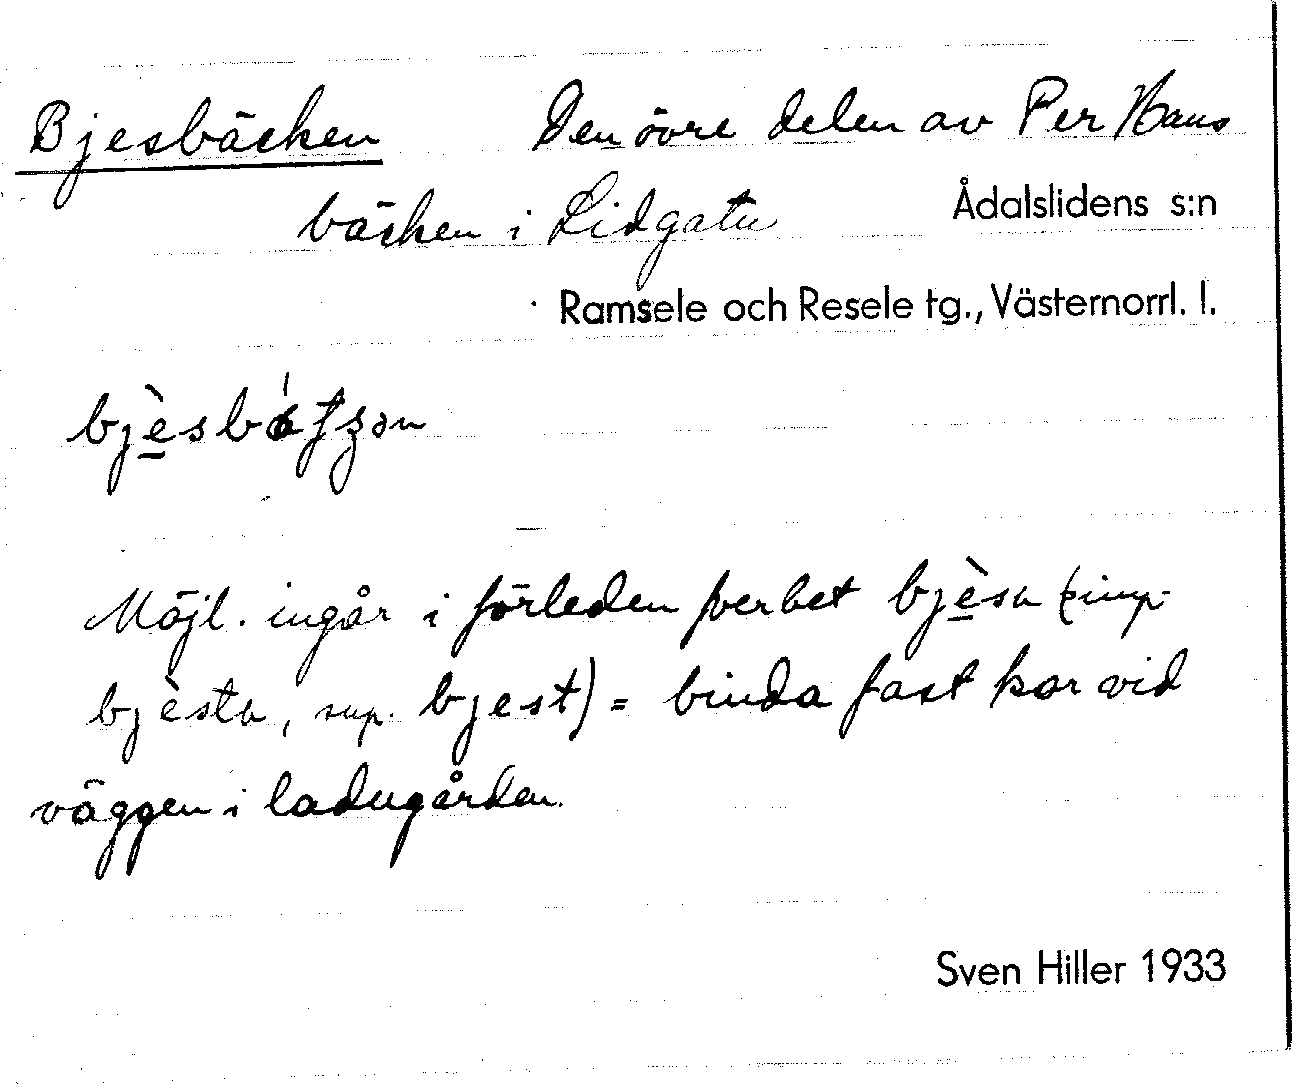 Bjesbäcken Den övre delen av Per Hans
bäcken i Lidgatu
Ådalslidens s:n
Ramsele och Resele tg., Västernorrl. l.
Möjl. ingår i förleden verbet bjèsa (imp.
bjèsta, sup. bjest) = binda fast kor vid
väggen i ladugården.
Sven Hiller 1933